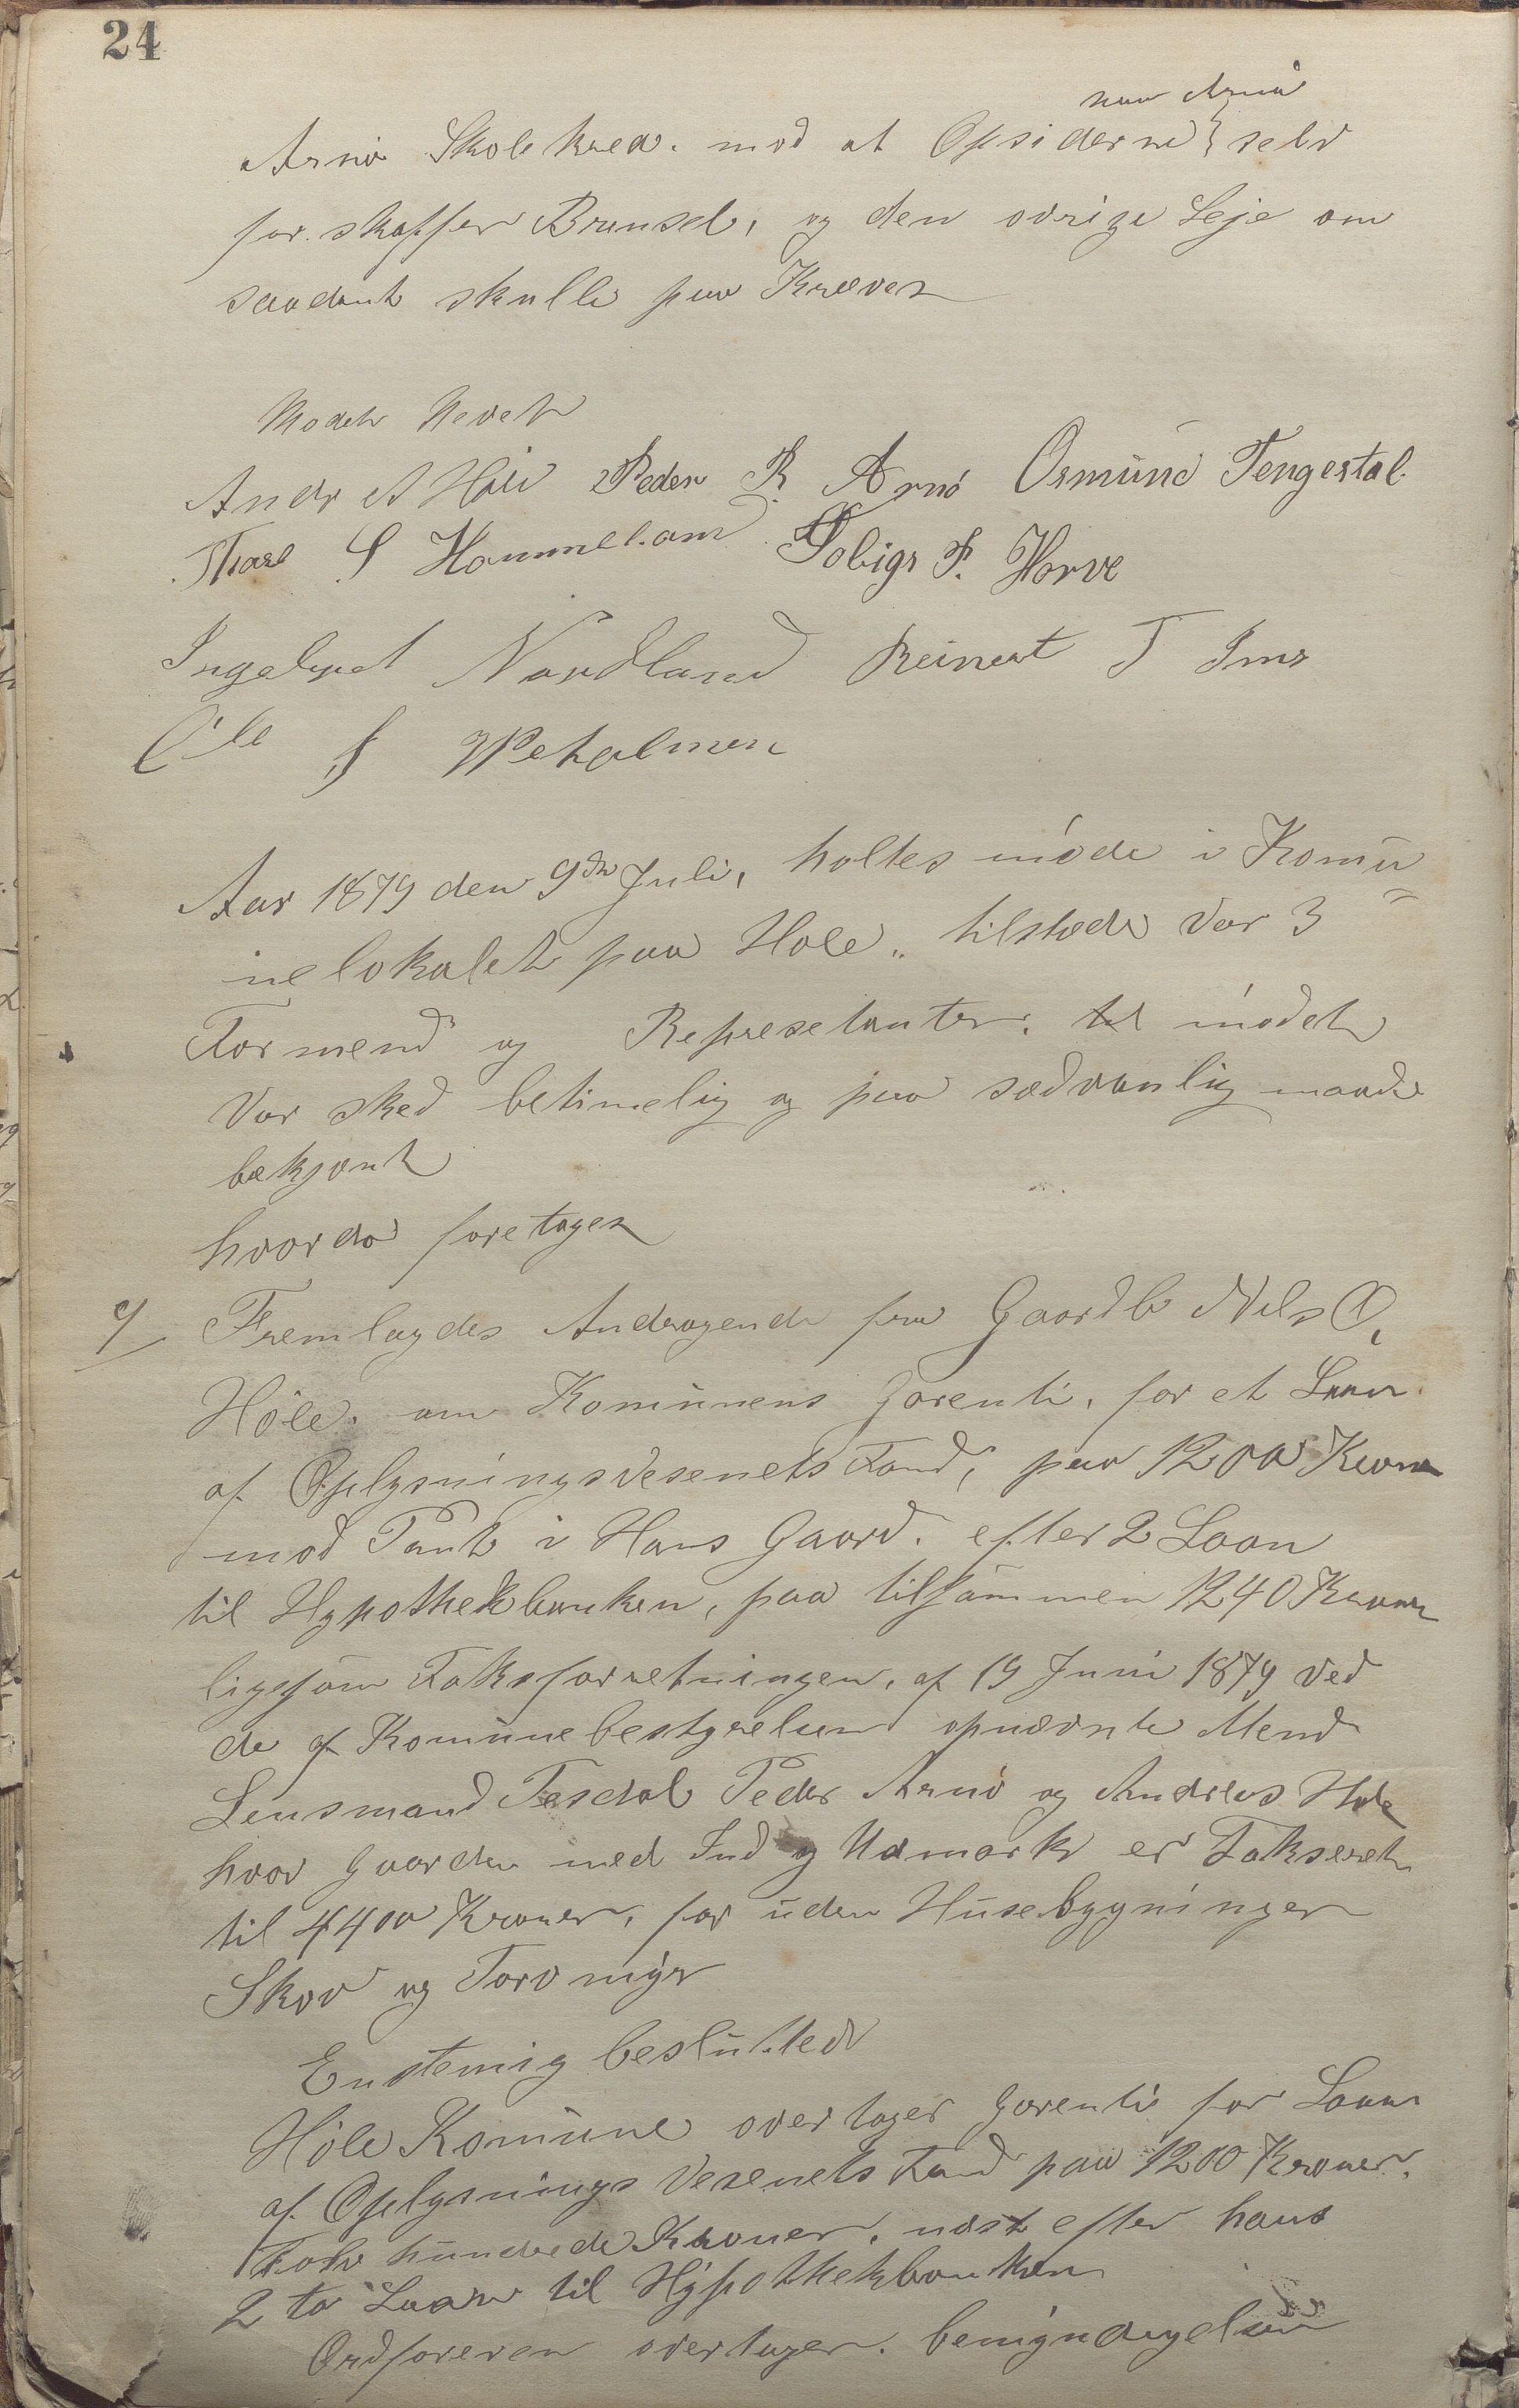 24
paa Arnø
Arnø Skolekreds. mod at Opsiderne selv
for skaffer Brensel, og den øvrige Leje om
saadant skulle paa Kræves
Modet Hevet
Andr A Høle Peder R Arnø Osmund Tengesdal.
Thore S Hommeland Tobias F. Horve
Ingebret Nordland Reinert T Ims
Ole J Meholmen
Aar 1879 den 9de Juli, holtes møde i Komu
nelokalet paa Hole, tilstede Var 3
Formend og Represetanter. møder
Var sked betimelig og paa sædvanlig maade
bekjent
hvorda foretages
Fremlagdes Andragende fra Gaardb Nils O,
Høle. om Komunens Garenti, for et Laan
af OplysningsVesenets Fond, paa 1200 Kroner
mod Pant i Hans Gaard. efter 2 Laan
til Hypothekbanken, paa tilsammen 1240 Kroner
ligesom Taksforretningen, af 19 Juni 1879 ved
de af Komunebestyrelsen opnævnte Mend
Lensmand Tesdal Peder Arnø og Andreas Hole
hvor Gaarden med Ind og Udmark er Takseret
til 4400 Kroner, for uden Husebygninger
Skov og Torvmyr
Enstemig besluttede
Høle Komune overtager Garenti for Laan
af Oplysnings Vesenets Fond paa 1200 Kroner.
Tolv hundrede Kroner, næst efter hans
2 to Laan til Hypothekbanken
Ordføreren overtager.